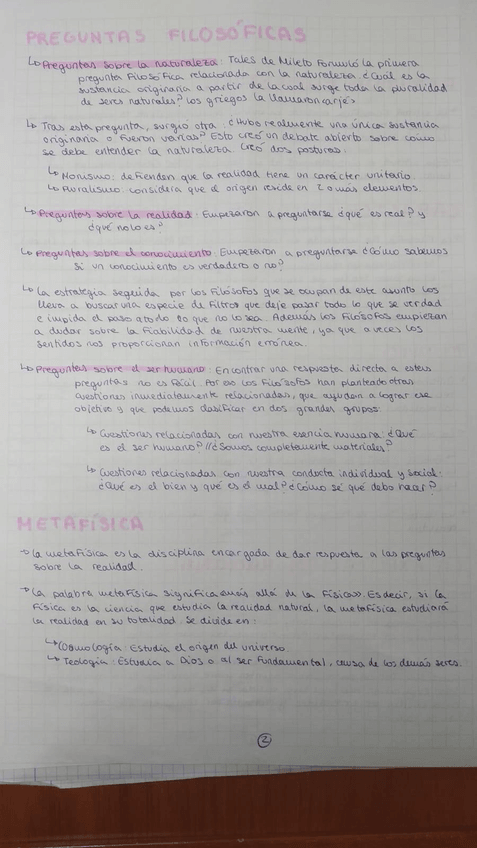 PREGUNTAS FILOSÓFICAS
Preguntas sobre la naturaleza: Tales de Mileto Formuló la primera
pregunta Filosófica relacionada con la naturaleza ¿Cuál es la
sustancia originaria a partir de la cual surge toda la pluralidad
de seres naturales? los griegos la llamaron arjé
Tras esta pregunta, surgió otra ¿Hubo realmente una única sustancia
originaria o fueron varias? Esto creó un debate abierto sobre como
se debe entender la naturaleza. Creó dos posturas:
Monismo: defienden que la realidad tiene un carácter unitario.
Pluralismo: considera que el origen reside en 2 o más elementos.
Preguntas sobre la realidad: Empezaron a preguntarse ¿qué es real? y
¿qué no lo es?
Preguntas sobre el conocimiento: Empezaron a preguntarse ¿Cómo sabemos
si un conocimiento es verdadero o no?
La estrategia seguida por los Filósofos que se ocupan de este asunto los
llevo a buscar una especie de Filtros que deje pasar todo lo que se verdad
e impida el paso a todo lo que no lo sea. Además los Filósofos empiezan
a dudar sobre la Fiabilidad de nuestra mente, ya que a veces los
sentidos nos proporcionan información errónea.
Preguntas sobre el ser humano: Encontrar una respuesta directa a estas
preguntas no es fácil. Por eso los Filósofos han planteado otras
cuestiones inmediatamente relacionadas, que ayudan a lograr ese
objetivo y que podemos clasificar en dos grandes grupos:
Cuestiones relacionadas con nuestra esencia humana ¿Qué
es el ser humano? // ¿Somos completamente materiales?
Cuestiones relacionadas con nuestra conducta individual y social:
¿Qué es el bien y qué es el mal? ¿Cómo sé qué debo hacer?
METAFÍSICA
La metafísica es la disciplina encargada de dar respuesta a las preguntas
sobre la realidad.
La palabra metafísica significa «más allá de la Física». Es decir, si la
Física es la ciencia que estudia la realidad natural, la metafísica estudiará
la realidad en su totalidad. Se divide en:
Cosmología: Estudia el origen del universo
Teología: Estudia a Dios o al ser Fundamental, causa de los demás seres.
2